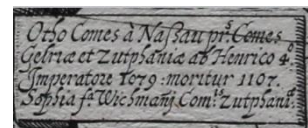 Otho Comes à Nassau prs Comes
Gelriæ et Zutphaniæ ab Henrico 4.o
Imperatore 1079 moritur 1107.
Sophia fa Wichmanj Comtis Zutphaniæ